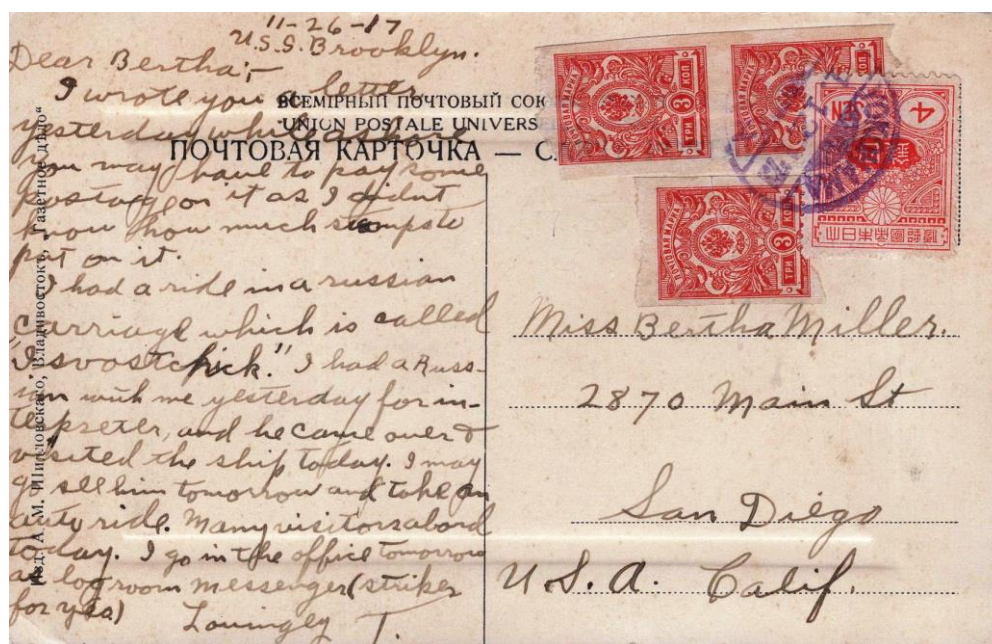 11-26-17
U.S.S. Brooklyn.
Dear Bertha;-
I wrote you a letter
yesterday while ashore
you may have to pay some
postage on it as I didnt
know how much stamps to
put on it.
I had a ride in a russian
carriage which is called
"Isvostchick." I had a Russ-
ian with me yesterday for in-
terpreter, and he came over &
visited the ship today. I may
go see him tomorrow and take an
auto ride. Many visitors abord
today. I go in the office tomorrow
as log room messenger (striker
for yeo)
Lovingly T.
ВСЕМІРНЫЙ ПОЧТОВЫЙ СОЮ
UNION POSTALE UNIVERS
ПОЧТОВАЯ КАРТОЧКА — C
Изд. А. М. Владивостокъ, „Газетное дѣло“
ПОЧТОВАЯ МАРКА
3 КОП
ТРИ
ПОЧТОВАЯ МАРКА
3 КОП
ПОЧТОВАЯ МАРКА
3 КОП
ТРИ
4 SEN
大日本帝國郵便
YOKOHAMA
Miss Bertha Miller.
2870 Main St
San Diego
U.S.A. Calif.